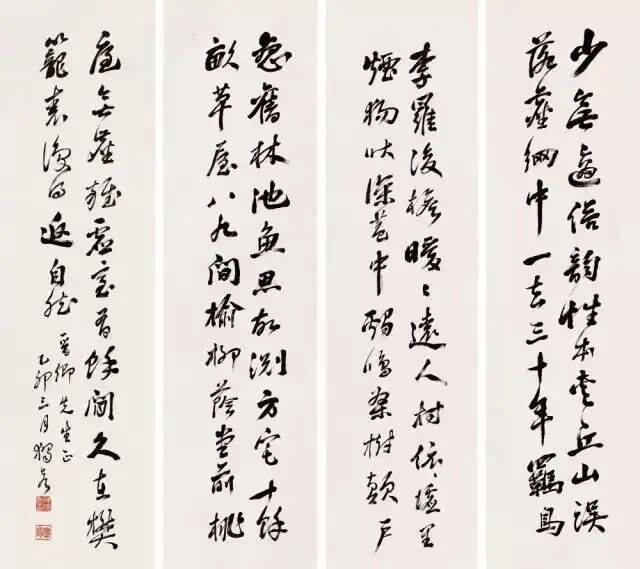 少無適俗韻性本愛丘山誤
落塵網中一去三十年羈鳥
李羅後檐曖〻遠人村依〻墟里
煙狗吠深巷中鷄鳴桑樹顛戶
戀舊林池魚思故渕方宅十餘
畝草屋八九間榆柳蔭堂前桃
庭無塵雜虛室有餘閒久在樊
籠裏復得返自然
晉卿先生正
乙卯三月獨秀